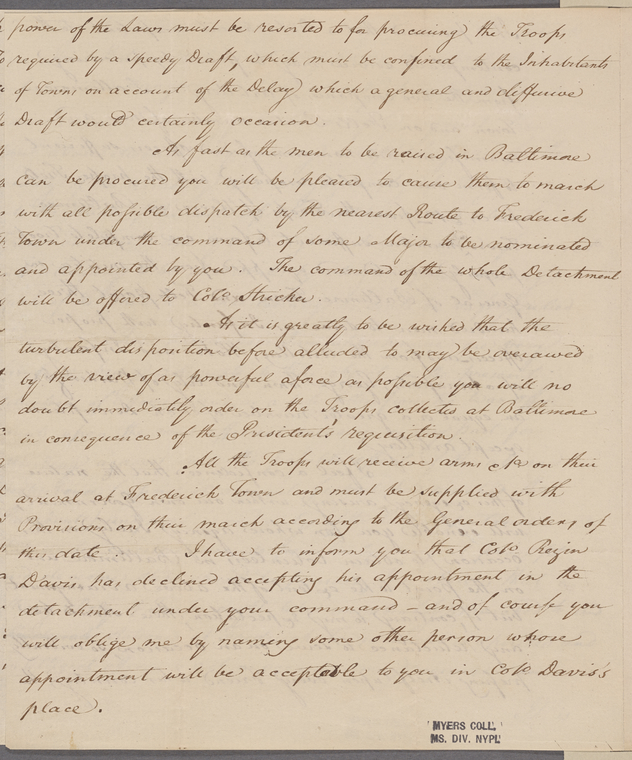 power of the Laws must be resorted to for procuring the Troops
required by a Speedy Draft, which must be confined to the Inhabitants
of Towns on account of the Delay which a general and diffusive
Draft would certainly occasion.
As fast as the men to be raised in Baltimore
can be procured you will be pleased to cause them to march
with all possible dispatch by the nearest Route to Frederick
Town under the command of some Major to be nominated
and appointed by you. The command of the whole Detachment
will be offered to Colo. Stricker.
As it is greatly to be wished that the
turbulent disposition before alluded to may be overawed
by the view of as powerful a force as possible you will no
doubt immediatly order on the Troops collected at Baltimore
in consequence of the President's requisition.
All the Troops will receive arms &c. on their
arrival at Frederick Town and must be supplied with
Provisions on their march according to the General orders of
this date. I have to inform you that Colo. Rezin
Davis has declined accepting his appointment in the
detachment under your command – and of course you
will oblige me by naming some other person whose
appointment will be acceptable to you in Colo. Davis's
place.
MYERS COLL.
MS. DIV. NYPL